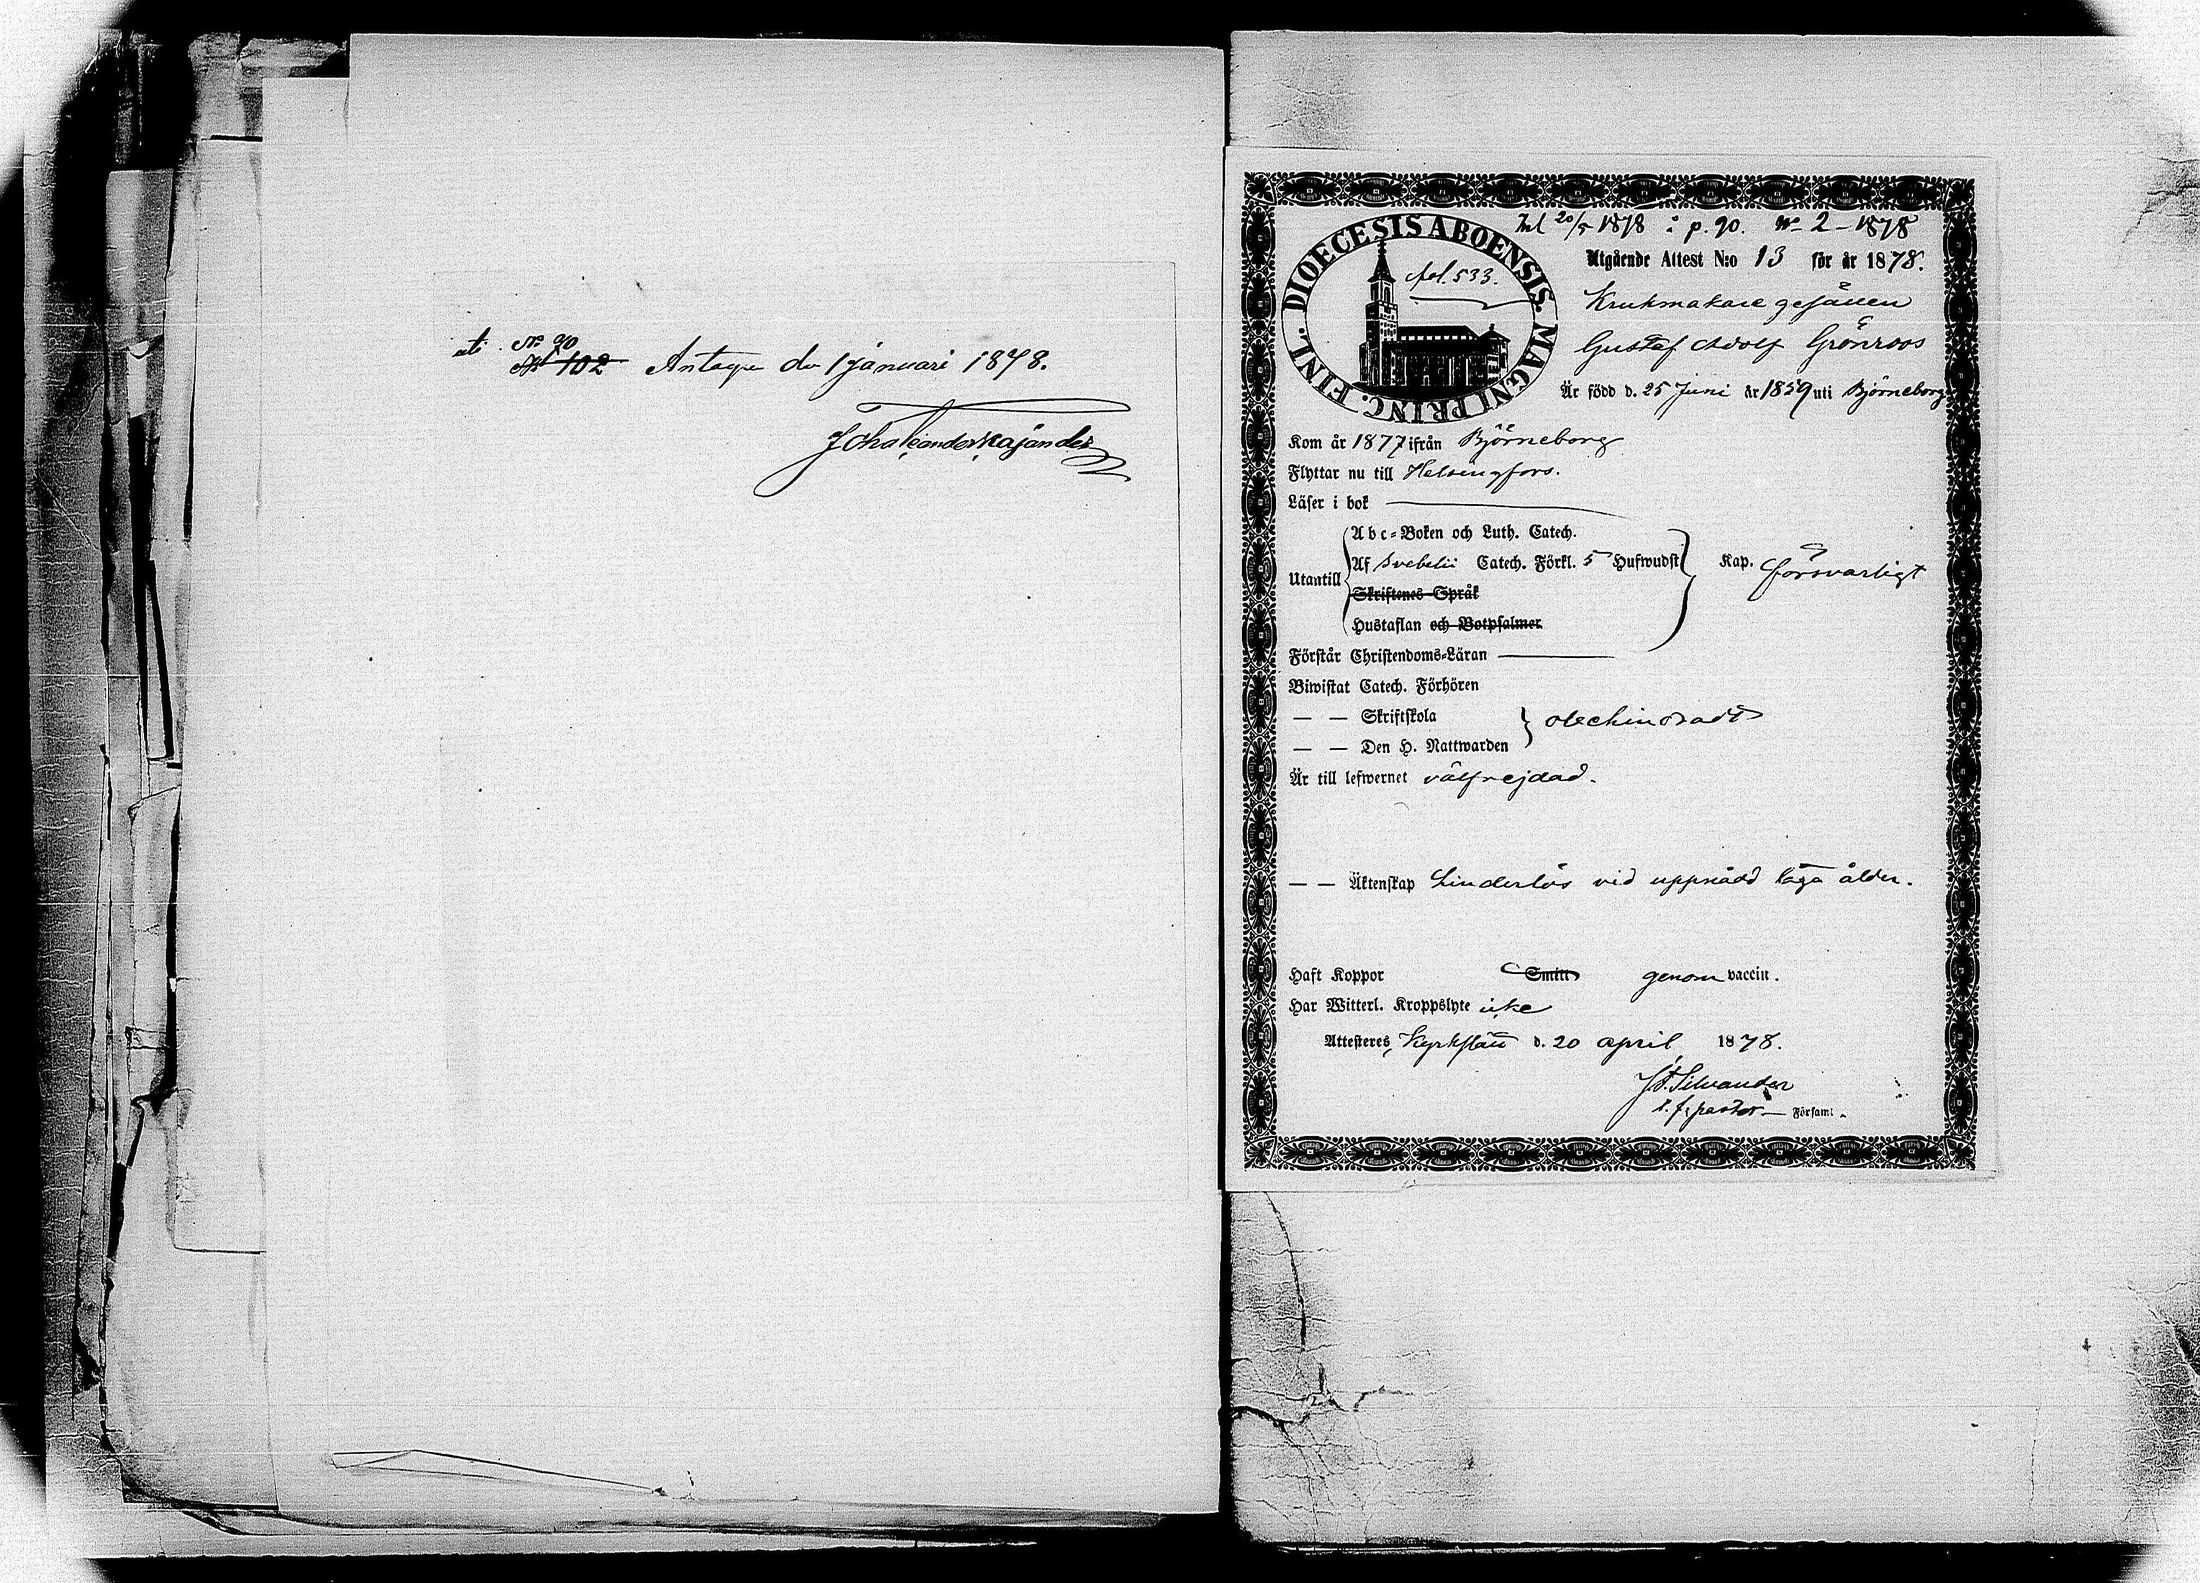 uti N:o 90
N:o 102 Antagen den 1 januari 1878.
Joh. Alexander Kajander
Inl 20/5 1878 i p. 90. N:o 2 - 1878
DIOECESIS ABOENSIS. MAGNI PRINC. FINL.
fol. 533.
Utgående Attest N:o 13 för år 1878.
Krukmakare gesällen
Gustaf Adolf Grönroos
Är född d. 25 Juni år 1859 uti Björneborg
Kom år 1877 ifrån Björneborg
Flyttar nu till Helsingfors.
Läser i bok
Utantill
Abc-Boken och Luth. Catech.
Af Svebelii Catech. Förkl. 5 Hufwudst. Kap. försvarligt
Skriftenes Språk
Hustaflan och Botpsalmer
Förstår Christendoms-Läran
Biwistat Catech. Förhören
— — Skriftskola obehindradt
— — Den H. Nattwarden
Är till lefwernet välfrejdad.
— — Äktenskap hinderlös vid uppnådd laga ålder.
Haft Koppor Smitt genom vaccin.
Har Witterl. Kroppslyte icke
Attesteres, Kyrkslätt d. 20 april 1878.
Silvander
t. f. pastor — Församl.